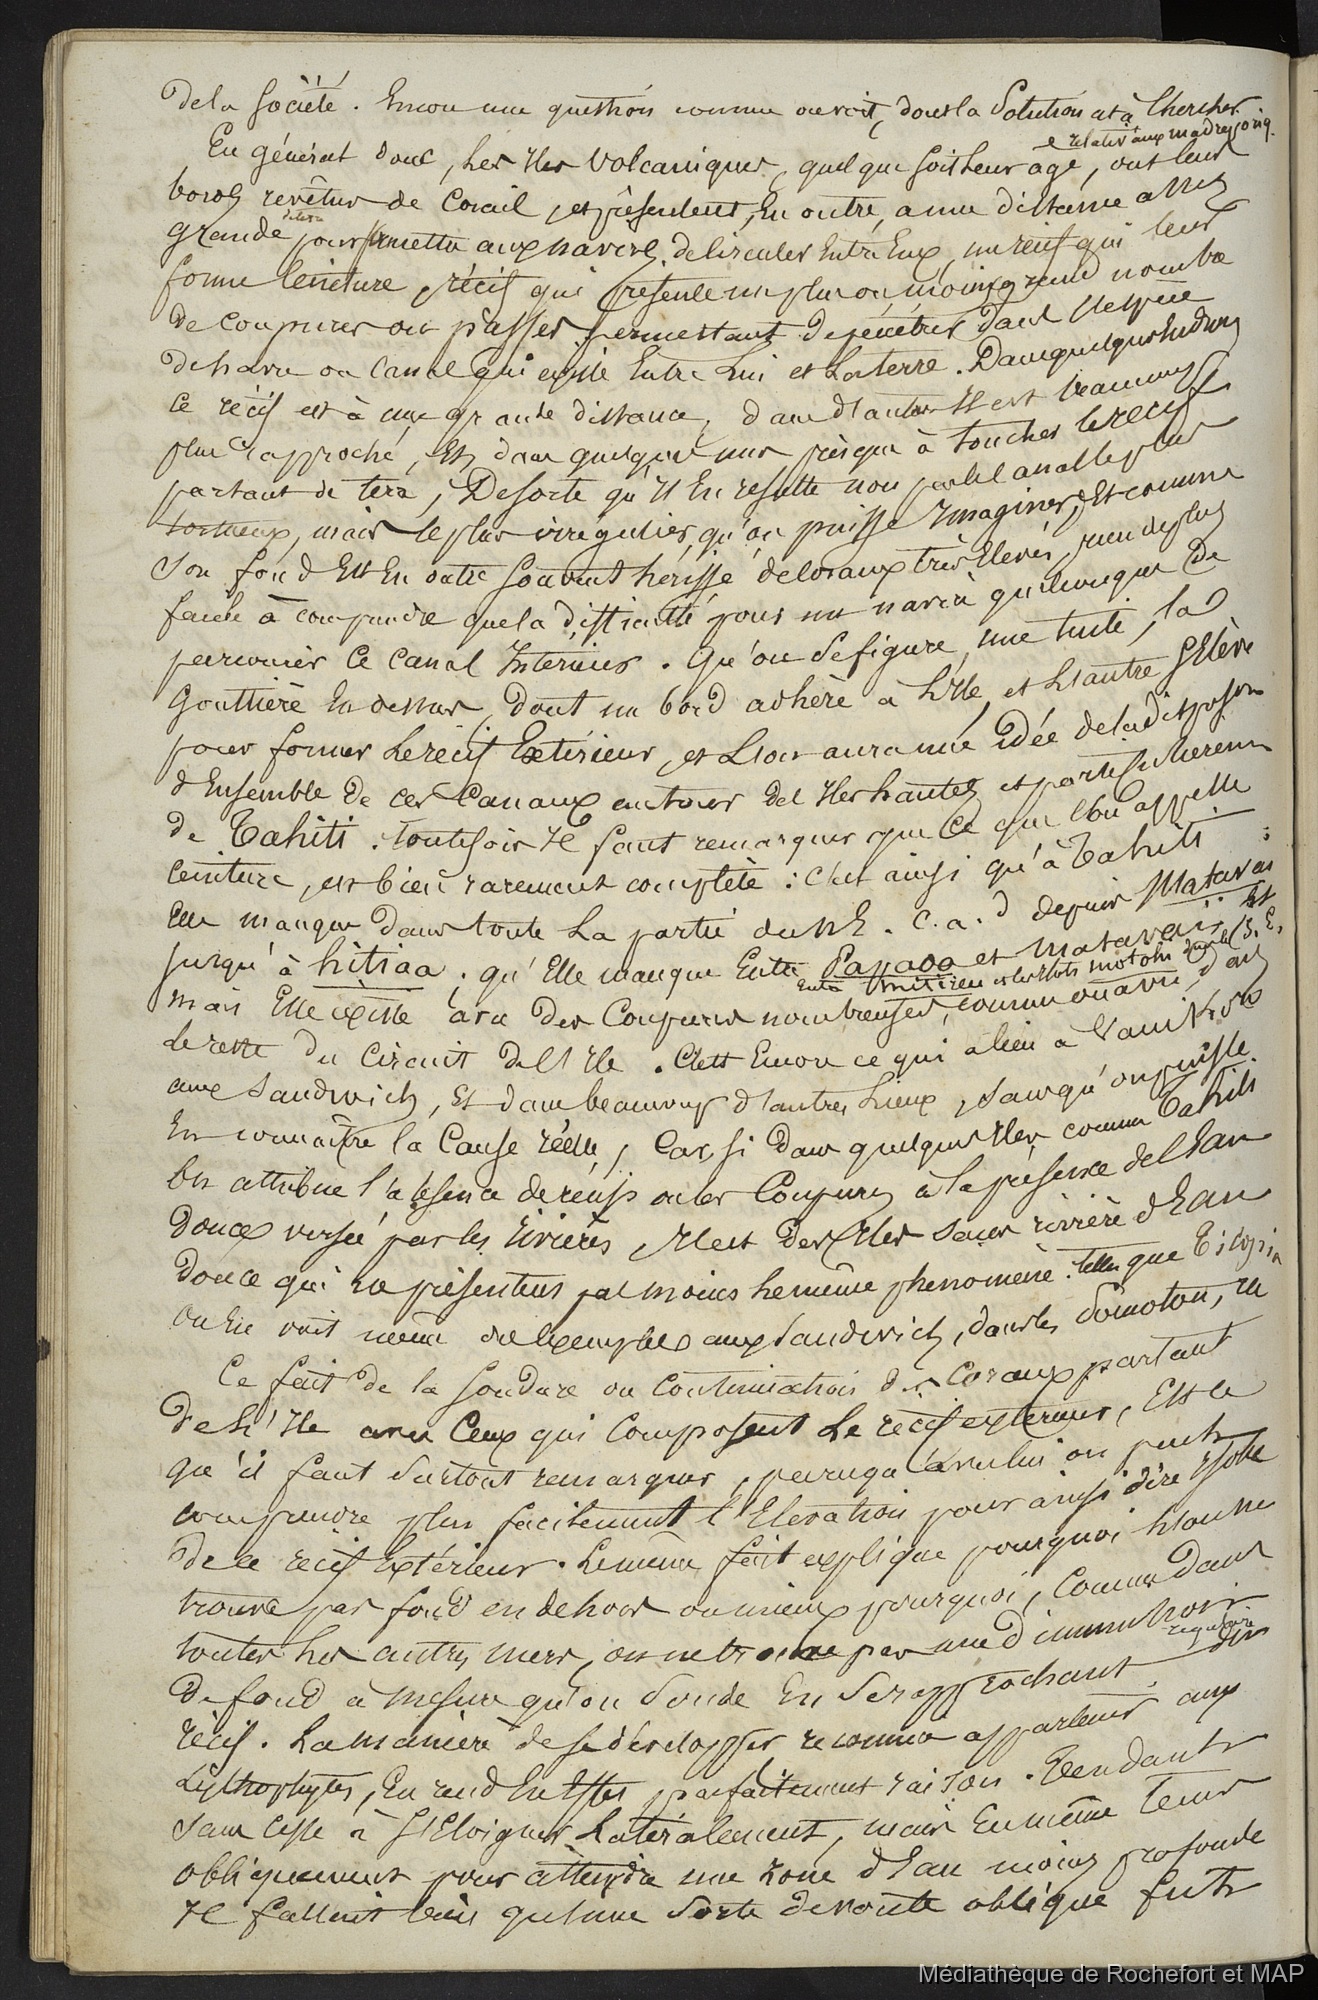 de la Société. Encore une question comme on voit, dont la Solution est à Chercher
e relativt aux madrép. orig.
En général donc, Les Iles Volcaniques, quelque soit Leur age, ont leur
bords revêtus de Corail, et présentent, En outre, a une distance assez
grande pour permettre aux navires de circuler Entre Eux, un récif qui leur
forme Ceinture, récif qui présente un plus ou moins grand nombre
de coupures ou passes permettant de pénétrer dans l'espèce
de havre ou Canal qui existe Entre Lui et La terre. Dans quelques Endroits
ce récif est à une grande distance, dans d'autres Il est beaucoup
plus rapproché, Et, dans quelques uns presque à toucher le récif
partant de terre, De sorte qu'Il En resulte non pas le canal le plus
tortueux, mais le plus irrégulier qu'on puisse Imaginer, Et comme
Son fond Est En outre Souvent hérissé de coraux très Elevés, rien de plus
facile à comprendre que la difficulté pour un navire quelconque de
parcourir Ce Canal Intérieur. Qu'on Se figure une tuile, la
Gouttière En dessus, dont un bord adhère à L'Ile, et L'autre S'Elève
pour former Le récif Extérieur, et L'on aura une idée de la disposon
d'Ensemble de ces Canaux autour des Iles hautes et particulièremt
de Tahiti. Toutefois Il faut remarquer que Ce que l'on appelle
Ceinture, est bien rarement complète : C'est ainsi qu'à Tahiti :
Elle manque dans toute La partie du N E. c. a. d depuis Matavai
jusqu'à hitiaa ; qu'Elle manque Entre Papaoa et Matavaii Et
Entre et les Ilots motohi dans le (S. E.
mais Elle existe avec des Coupures nombreuses, comme on a vu, dans
Le reste du Circuit de l'Ile. C'est Encore ce qui a lieu à Vanikoro
aux Sandwich, Et dans beaucoup d'autres Lieux, Sans qu'on puisse
En connaître la Cause réelle, Car, si dans quelques Iles comme Tahiti
On attribue l'absence de récifs ou les Coupures à la présence de l'Eau
douce versée par les rivières, Il est des Iles sans rivière d'Eau
douce qui ne présentent pas moins Le même phénomène : telles que Ticopia
On En voit même des Exemples aux Sandwich, dans les Pomotou, etc
Ce fait de la Soudure ou Continuation des Coraux partant
de L'Ile avec Ceux qui Composent Le récif extérieur, Est ce
qu'il faut Surtout remarquer, parcequ'avec lui on peut
comprendre plus facilement l'Elévation pour ainsi dire Isolée
de ce récif Extérieur. Le même fait explique pourquoi L'on ne
trouve pas fond en dehors ou mieux pourquoi, Comme dans
toutes Les autres mers, on ne trouve pas une diminution
régulière
de fond à mesure qu'on Sonde En Se rapprochant du
récif. La manière de Se développer reconnue appartenir aux
Lythophytes, En rend En Effet parfaitement raison. Tendants
Sans Cesse à S'Eloigner Latéralement, mais En même tems
obliquement pour atteindre une zone d'Eau moins profonde
Il fallait bien qu'une Sorte de voûte oblique fut
Médiathèque de Rochefort et MAP